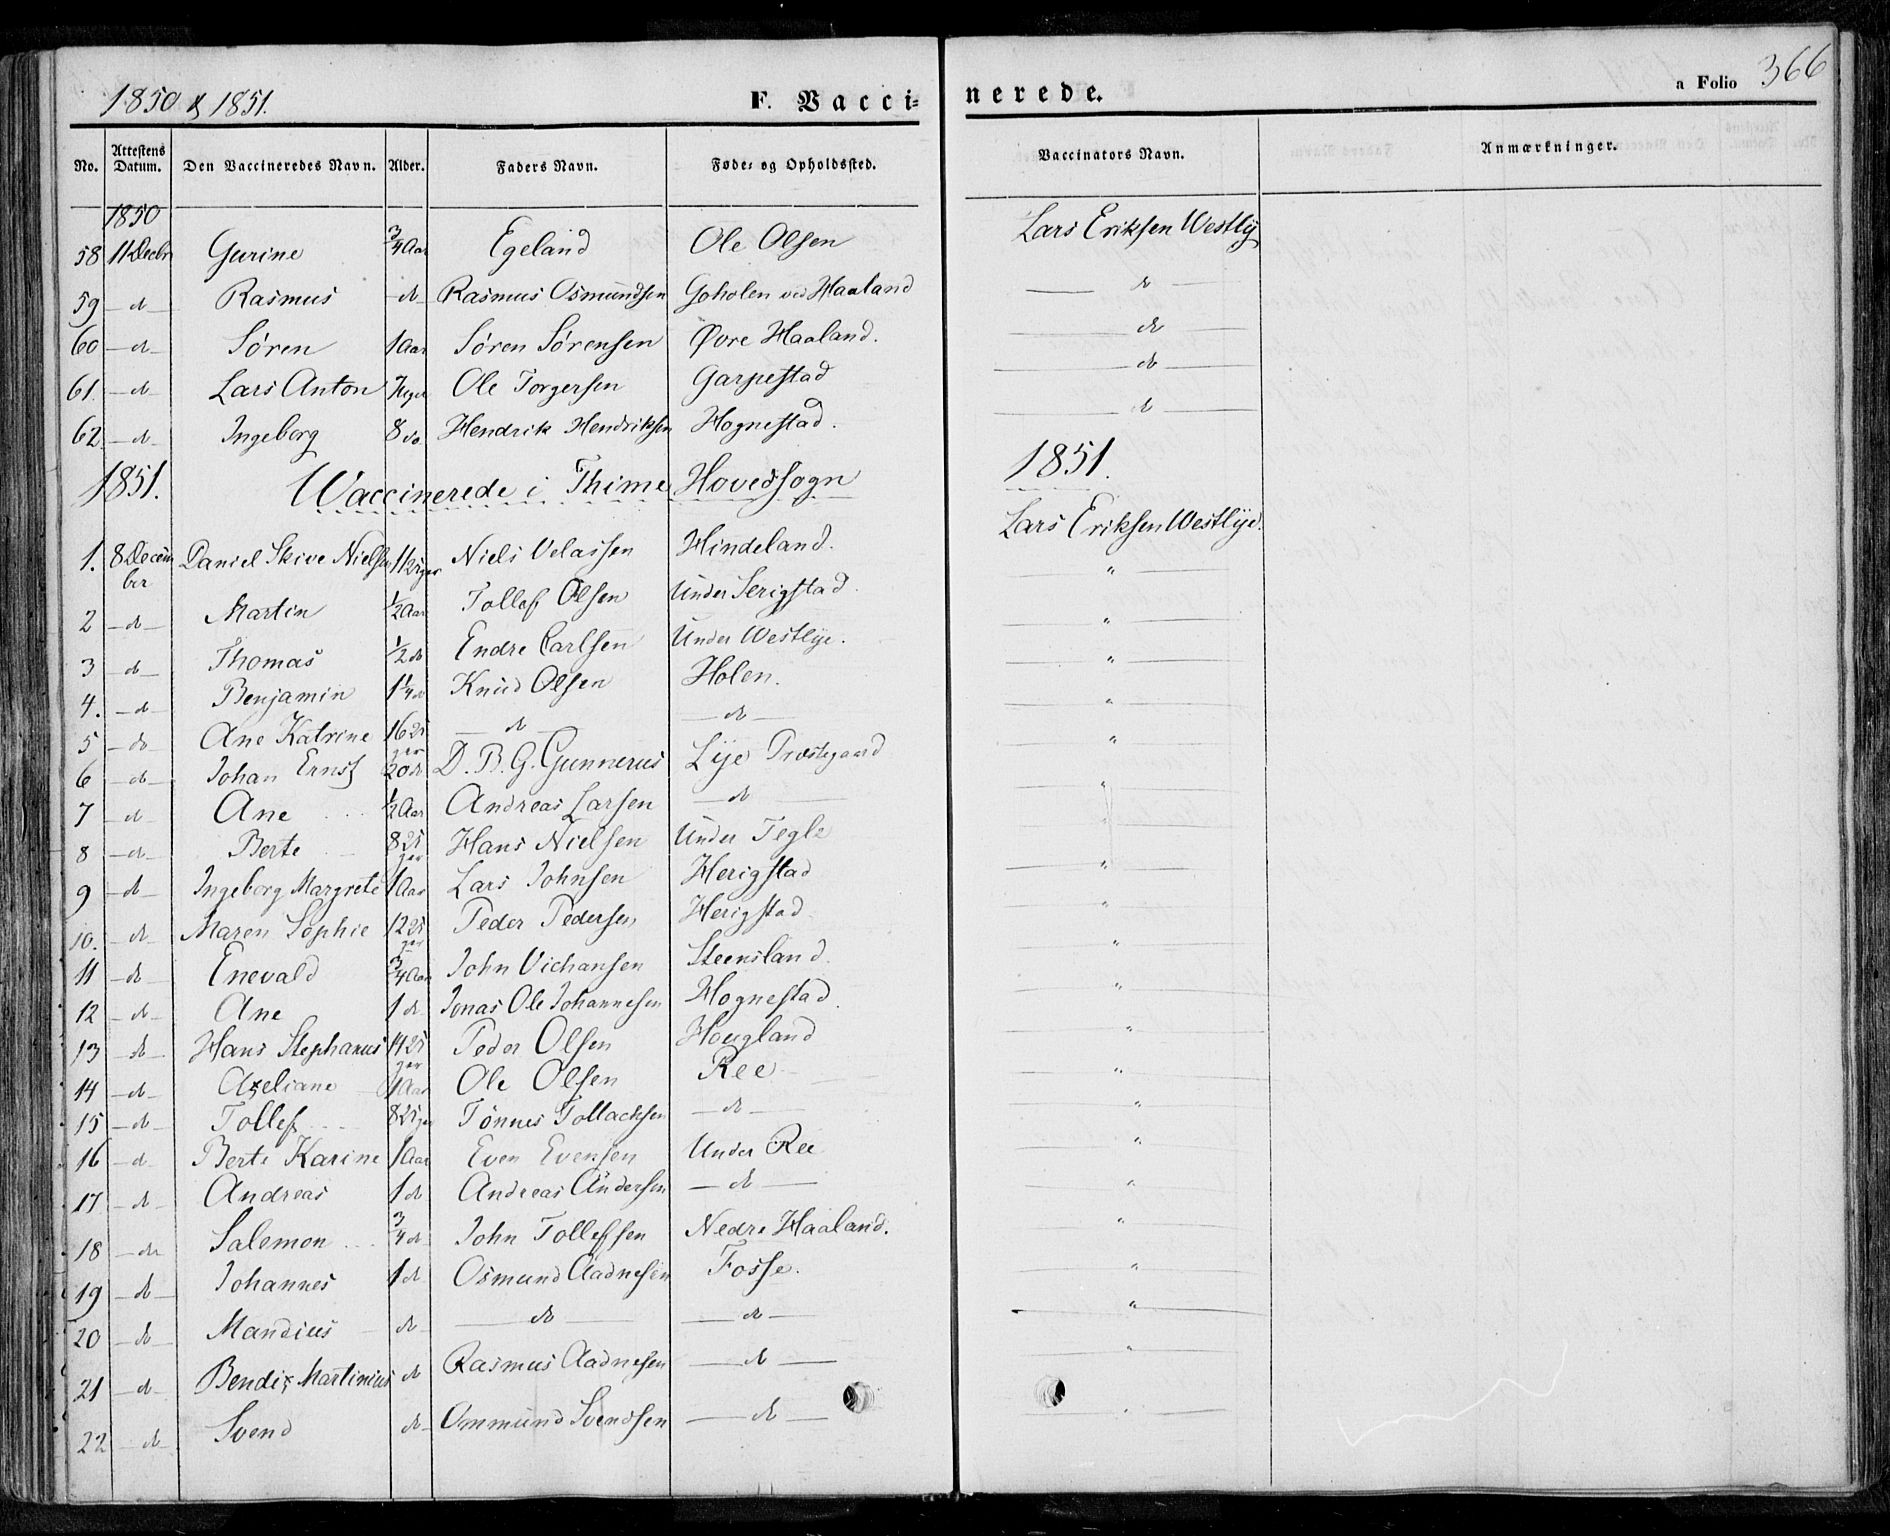 1850 & 1851.
F. Vaccinerede.
a Folio 366
No. Attestens Datum. Den Vaccineredes Navn. Alder. Faders Navn. Føde- og Opholdssted. Vaccinators Navn. Anmærkninger.
1850
58 11 Decbr Gurine 3/4 Aar Egeland Ole Olsen Lars Eriksen Westly
59 - d - Rasmus - d - Rasmus Osmundsen Goholen ved Haaland - d -
60 - d - Søren 1 Aar Søren Sørensen Øvre Haaland. - d -
61 - d - Lars Anton Ole Torgersen Garpestad - d -
62 - d - Ingeborg 8 do Hendrik Hendriksen Hognestad. - d -
1851. Vaccinerede i Thime Hovedsogn 1851.
Lars Eriksen Westlye.
1. 8 Decem ber Daniel Skive Nielsen Niels Velassen Hindeland. "
2 - d - Martin 1/2 Aar Tollef Olsen Under Serigstad. "
3 - d - Thomas 1/2 d Endre Carlsen Under Westlye. "
4. - d - Benjamin 1 1/4 d Knud Olsen Holen. "
5 - do Ane Katrine 16 - d - - d - "
6 - d - Johan Ernst 20 d D. B. G. Gunnerus Lye Præstegaard "
7 - d - Ane 1/2 Aar Andreas Larsen - d - "
8 - d - Berte 8 Hans Nielsen Under Tegle "
9 - d - Ingeborg Margrete 1 Aar Lars Johnsen Herigstad "
10. - d - Maren Sophie 12 Peder Pedersen Herigstad "
11 - d - Enevald 3/4 Aar John Vichansen Steensland. "
12 - d - Ane 1 d Jonas Ole Johannesen Hognestad. "
13 - d - Hans Stephanus 14 Peder Olsen Hougland "
14 - d - Axeliane 1 Aar Ole Olsen Ree "
15 - d - Tollef 8 Tønnes Tollachsen - d - "
16 - d - Berte Karine 1 Aar Even Evensen Under Ree "
17 - d - Andreas 1 d Andreas Andersen - d - "
18 - d - Salemon 3/4 d John Tollefsen Nedre Haaland. "
19 - d - Johannes 1 d Osmund Aadnesen Fosse. "
20 - d - Mandius - d - - d - - d - "
21 - d - Bendix Martinius d Rasmus Aadnesen - d - "
22 - d - Svend - d - Ommund Svendsen - d - "